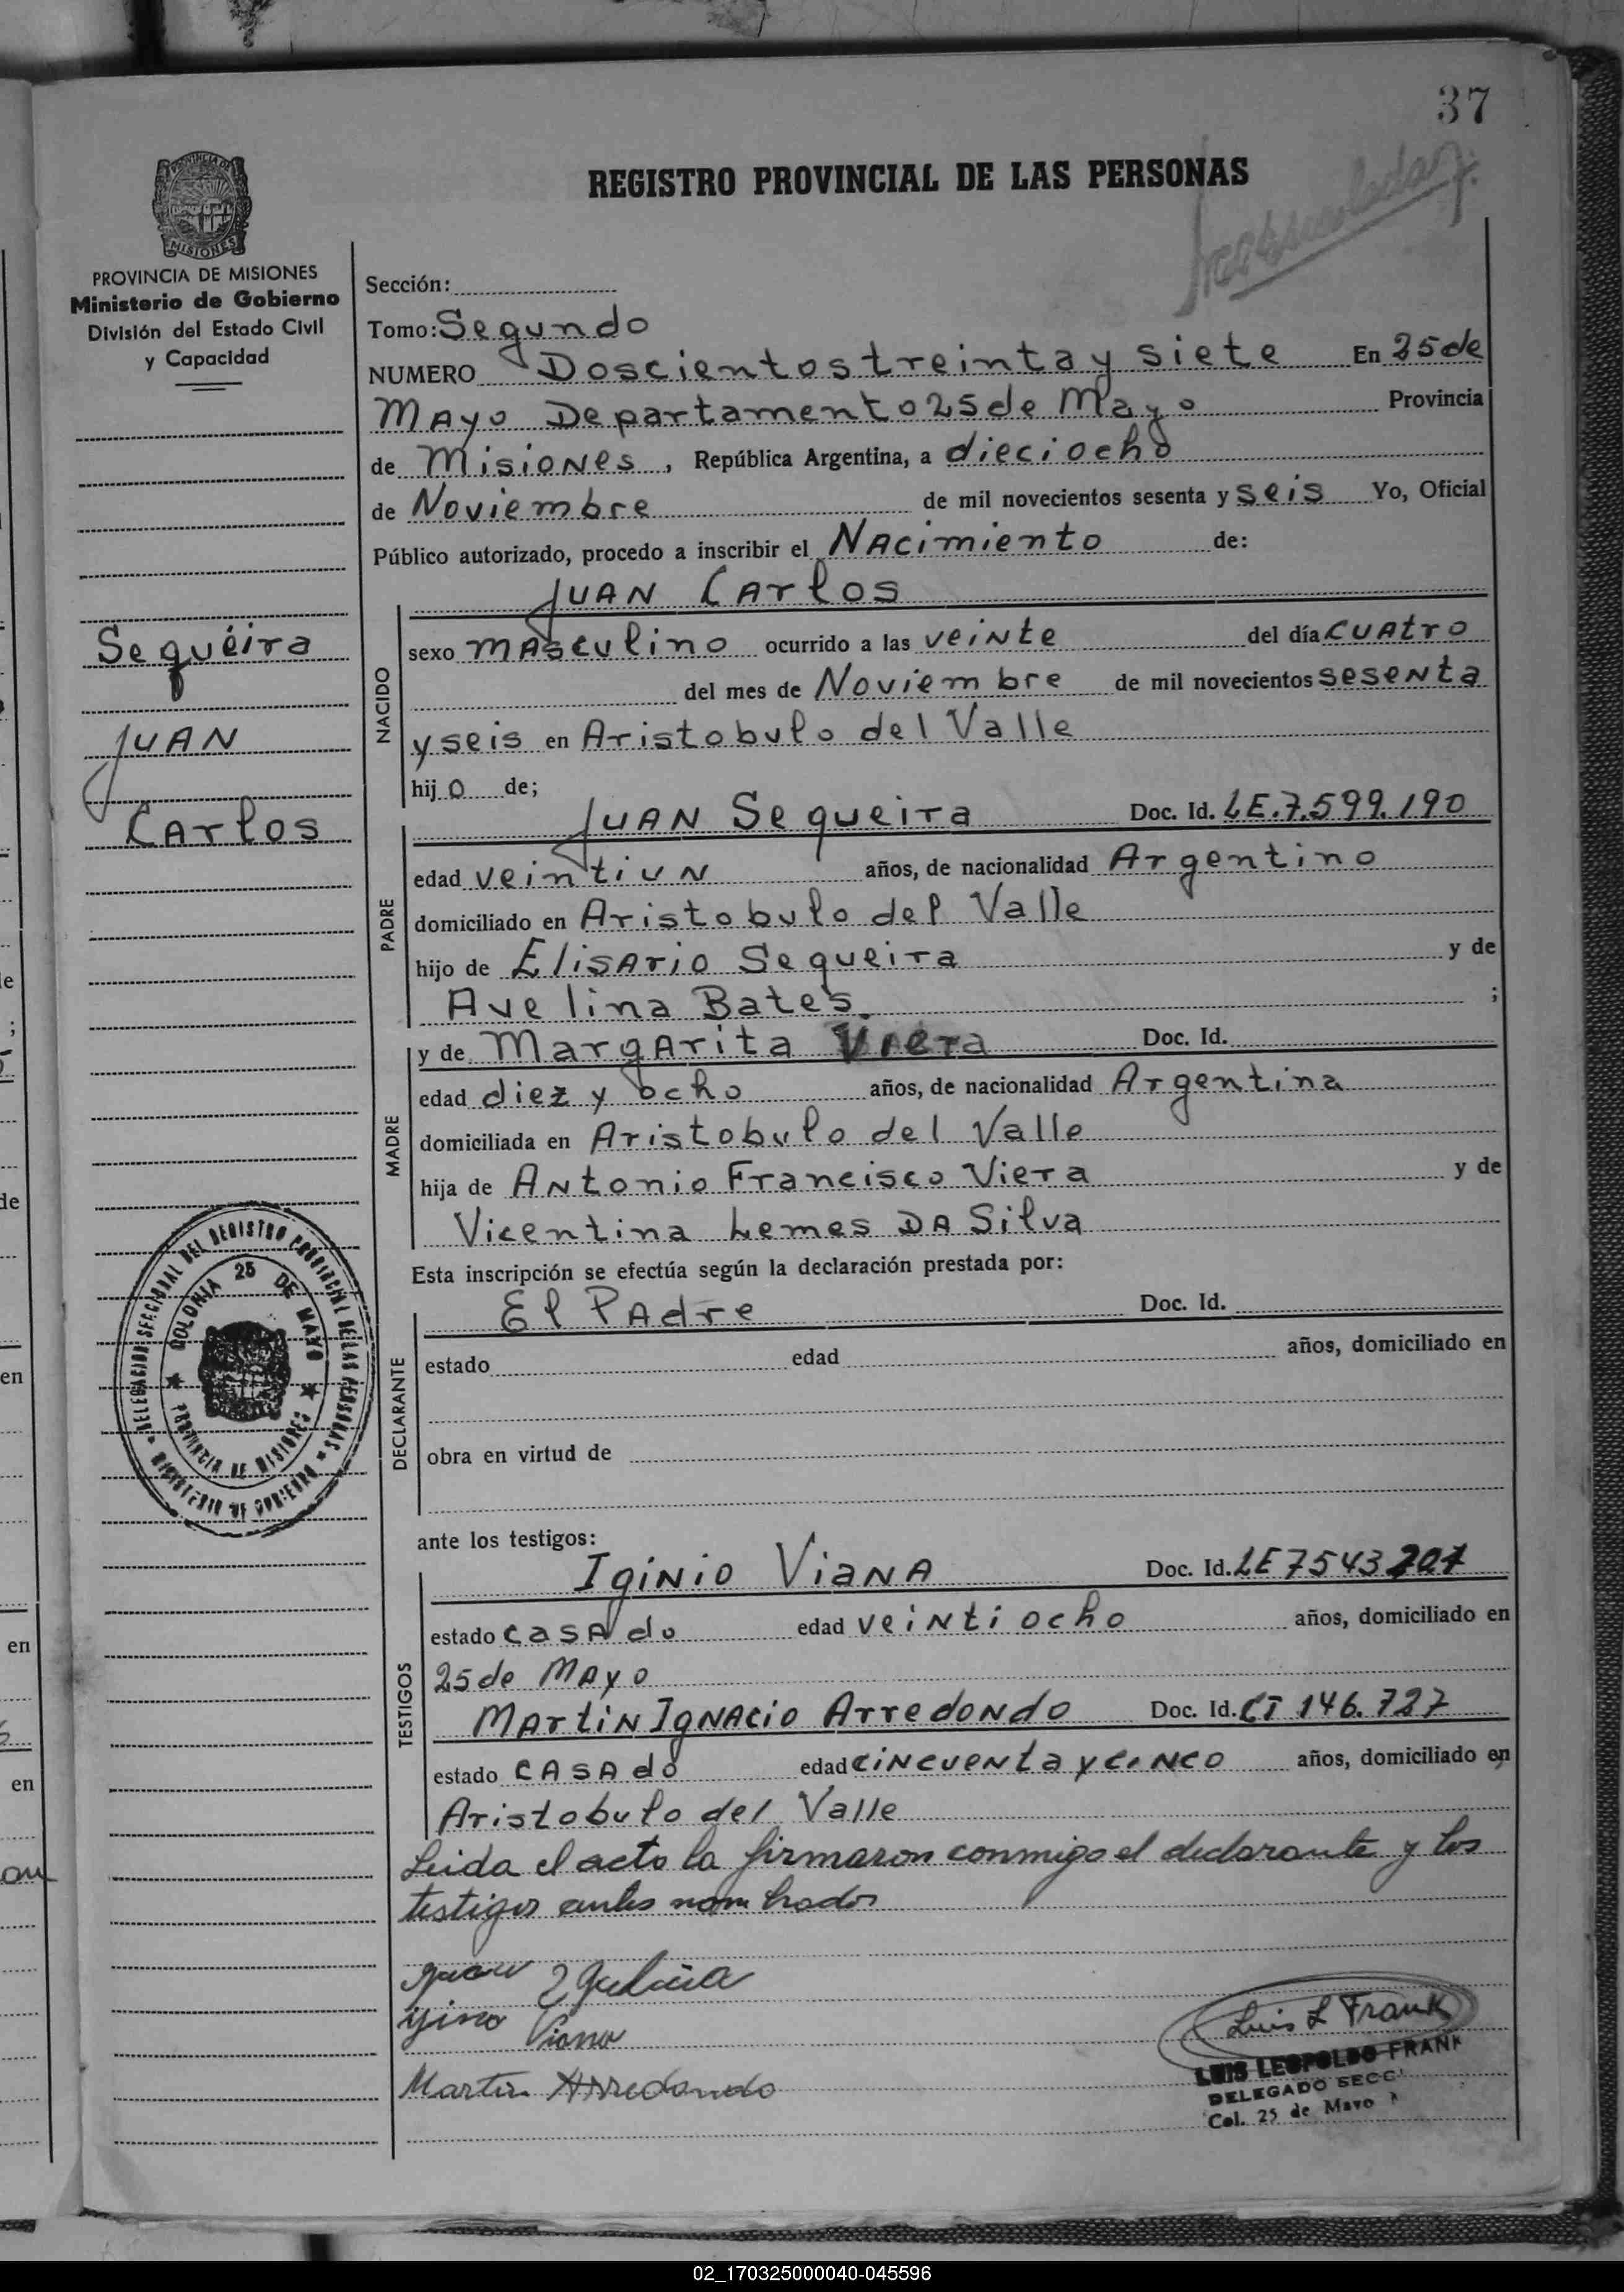 37
REGISTRO PROVINCIAL DE LAS PERSONAS
PROVINCIA DE
MISIONES
PROVINCIA DE MISIONES
Ministerio de Gobierno
División del Estado Civil
y Capacidad
Sequéira
JUAN
CArlos
DELEGACION SECCIONAL DEL REGISTRO PROVINCIAL DE LAS PERSONAS
MINISTERIO DE GOBIERNO
COLONIA 25 DE MAYO
PROVINCIA DE MISIONES
Sección:
Tomo: Segundo
NUMERO Doscientos treinta y siete En 25 de
MAyo Departamento 25 de Mayo Provincia
de Misiones, República Argentina, a dieciocho
de Noviembre de mil novecientos sesenta y seis Yo, Oficial
Público autorizado, procedo a inscribir el NAcimiento de:
JUAN CArlos
NACIDO
sexo mAsculino ocurrido a las veiNte del día CUAtro
del mes de Noviembre de mil novecientos seseNta
y seis en Aristobulo del Valle
hijo de;
PADRE
JUAN Sequeira Doc. Id. LE.7.599.190
edad veintiuN años, de nacionalidad Argentino
domiciliado en Aristobulo del Valle
hijo de ElisArio Sequeira y de
Avelina Bates. ;
MADRE
y de MargArita Viera Doc. Id.
edad diez y ocho años, de nacionalidad Argentina
domiciliada en Aristobulo del Valle
hija de ANtonio Francisco Viera y de
Vicentina Lemes DA Silva
Esta inscripción se efectúa según la declaración prestada por:
DECLARANTE
El PAdre Doc. Id.
estado edad años, domiciliado en
obra en virtud de
ante los testigos:
TESTIGOS
IgiNio ViaNA Doc. Id. LE 7543207
estado casAdo edad veiNtiocho años, domiciliado en
25 de MAyo
MArtiN IgNAcio ArredoNdo Doc. Id. CI 146.727
estado CASAdo edad CiNcueNta y ciNco años, domiciliado en
Aristobulo del Valle
Leida el acto la firmaron conmigo el declarante y los
testigos antes nombrados
Viana
Martin Arredondo
Luis L Frank
LUIS LEOPOLDO FRANK
DELEGADO SECC
Col. 25 de Mayo
02_170325000040-045596